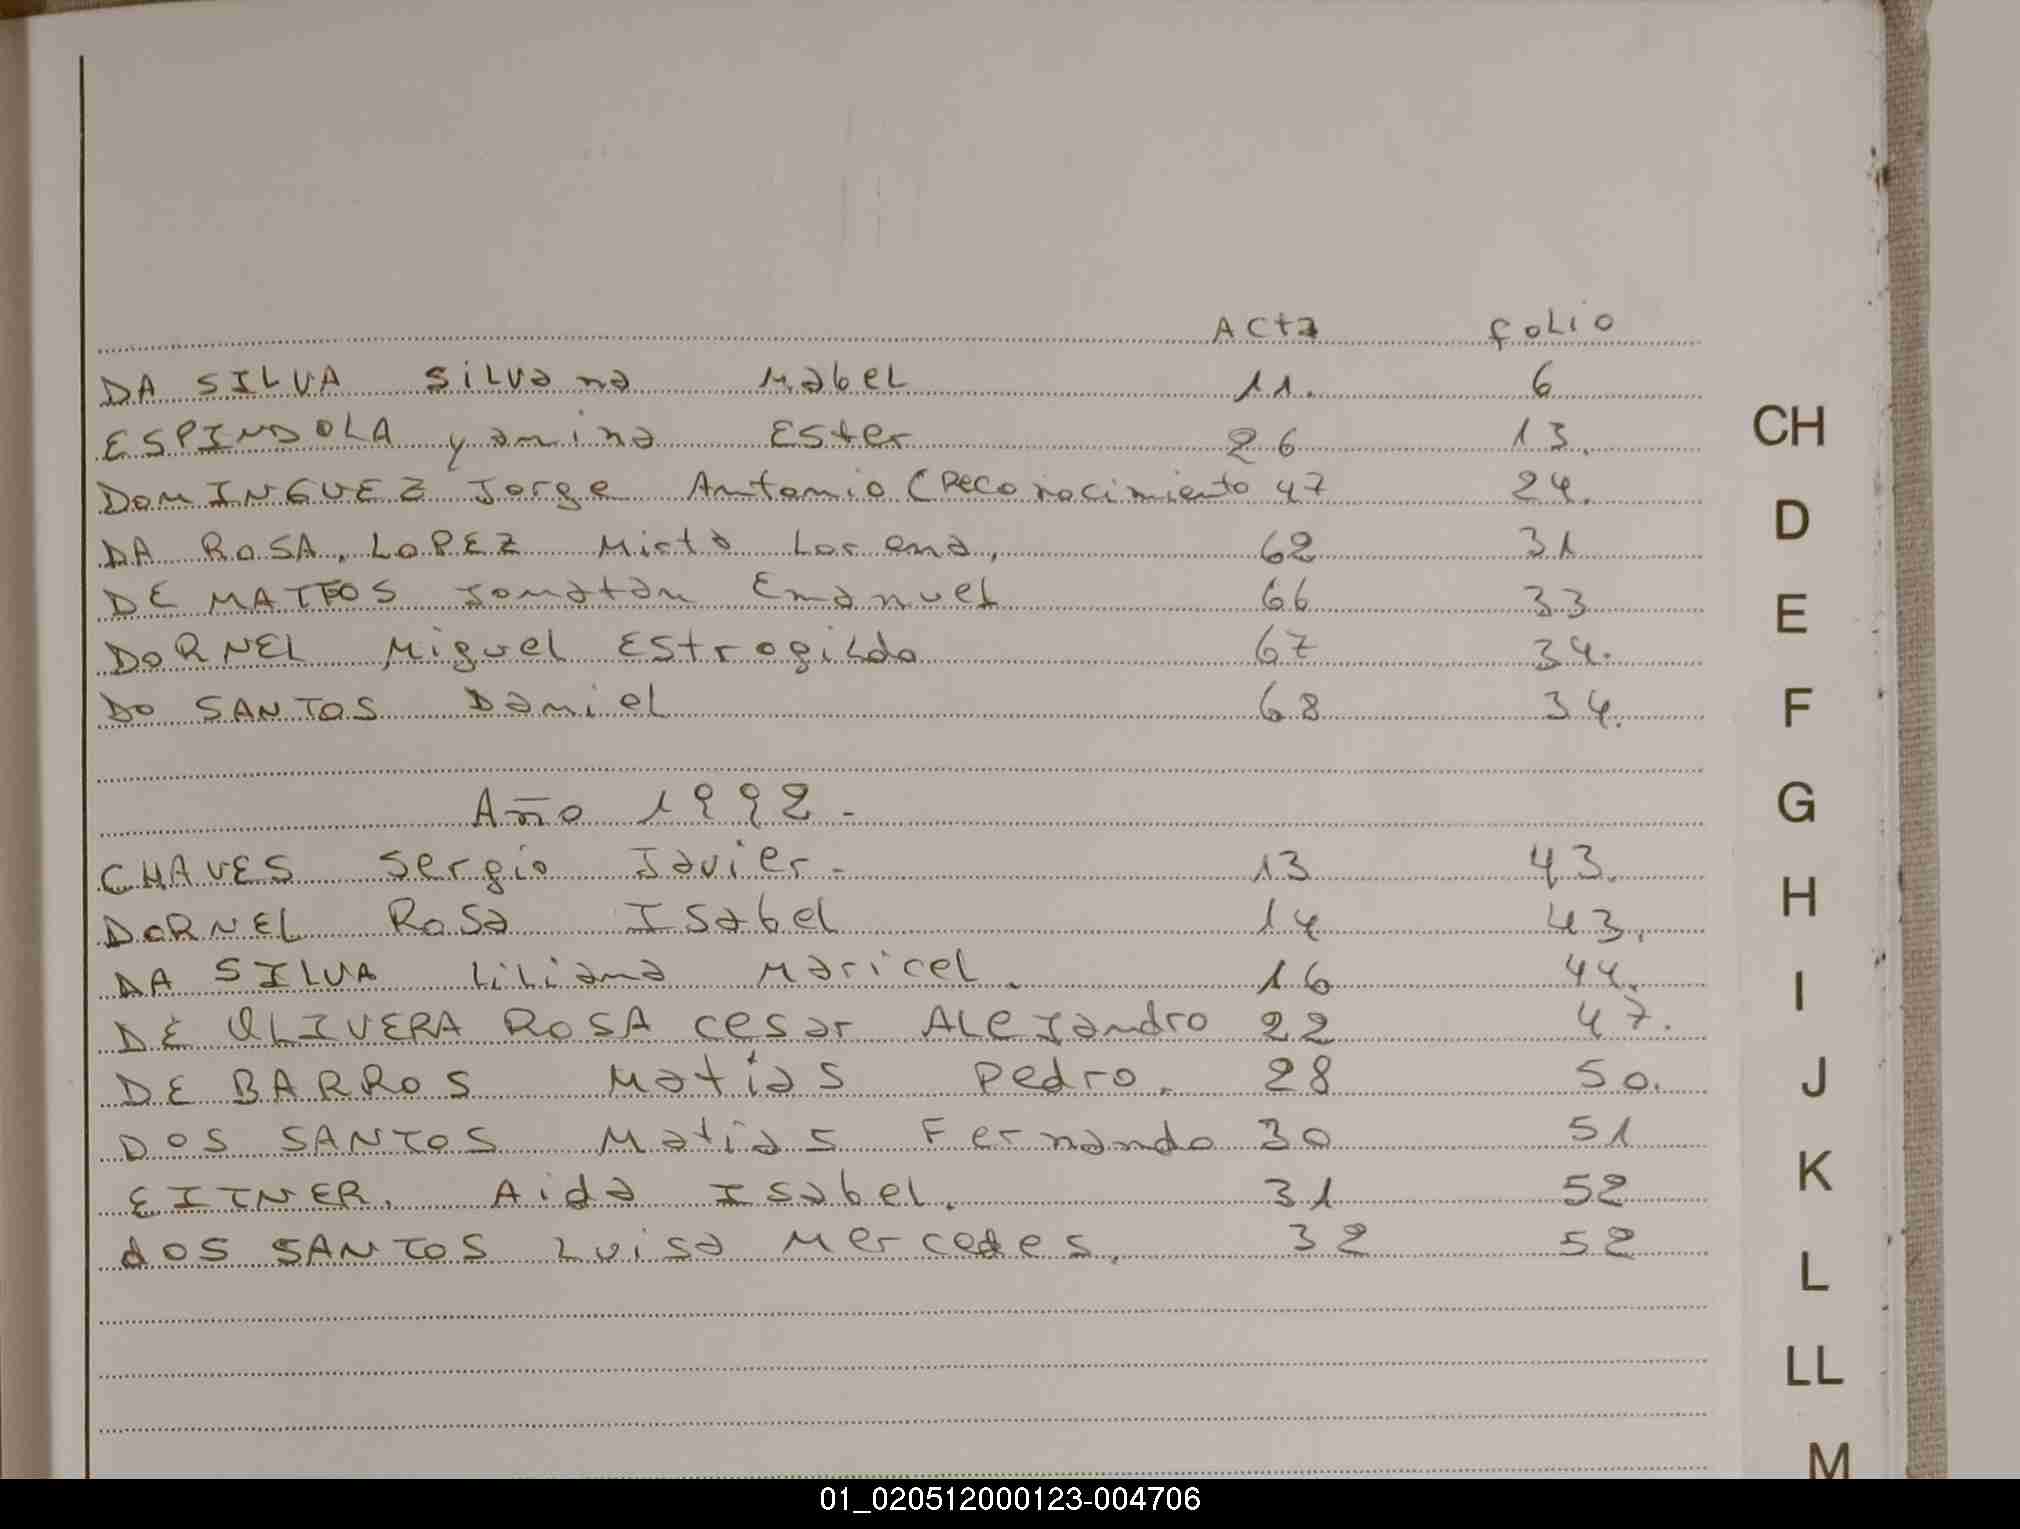 Acta folio
DA SILVA Silvana Mabel 11. 6
ESPINDOLA yanina Ester 26 13.
DOMINGUEZ Jorge Antonio (Reconocimiento 47 24.
DA ROSA, LOPEZ Mirta Lorena, 62 31
DE MATTOS Jonatan Emanuel 66 33
DORNEL Miguel Estrogildo 67 34.
DO SANTOS Daniel 68 34.
Año 1992.-
CHAVES Sergio Javier.- 13 43.
DORNEL Rosa Isabel 14 43.
DA SILVA Liliana Maricel. 16 44.
DE OLIVERA ROSA Cesar Alejandro 22 47.
DE BARROS Matias Pedro. 28 50.
DOS SANTOS Matias Fernando 30 51
EITNER. Aida Isabel. 31 52
dOS SANTOS Luisa Mercedes. 32 52
CH
D
E
F
G
H
I
J
K
L
LL
M
01_020512000123-004706